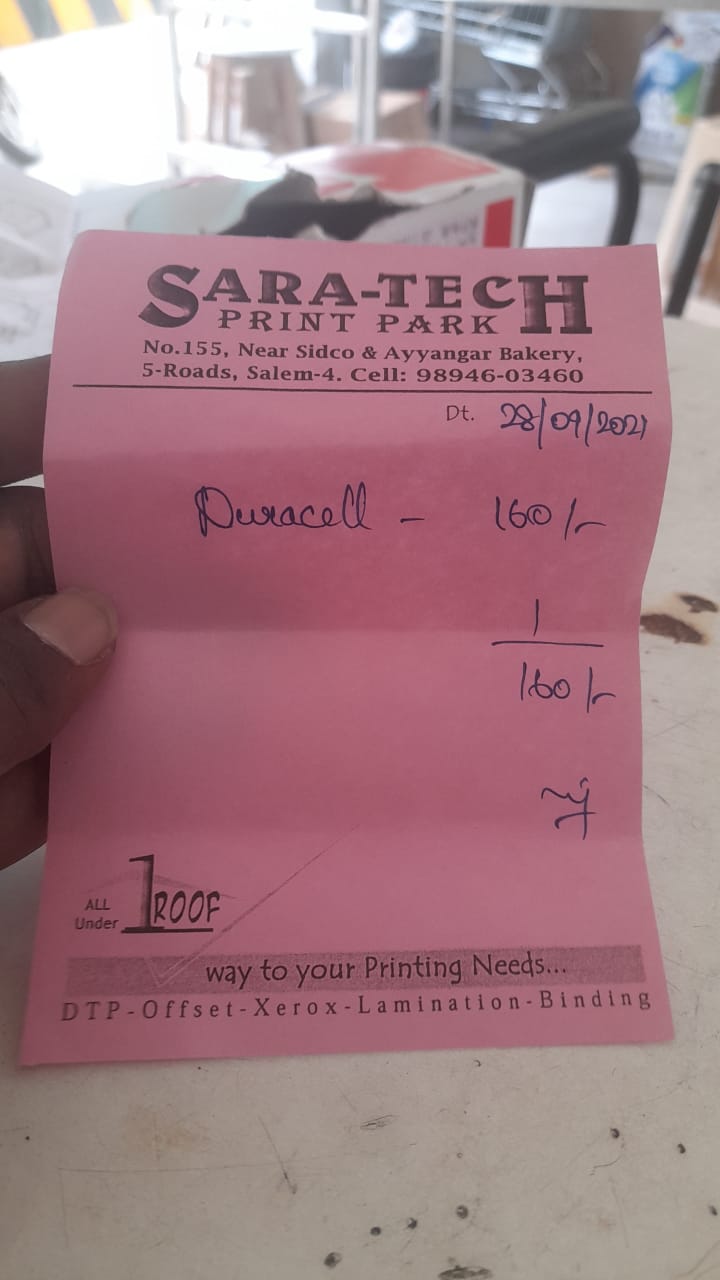 SARA-TECH
PRINT PARK
No.155, Near Sidco & Ayyangar Bakery,
5-Roads, Salem-4. Cell: 98946-03460
Dt. 28/09/2021
Duracell - 160/-
1
160/-
ALL
Under 1ROOF
way to your Printing Needs...
DTP-Offset-Xerox-Lamination-Binding